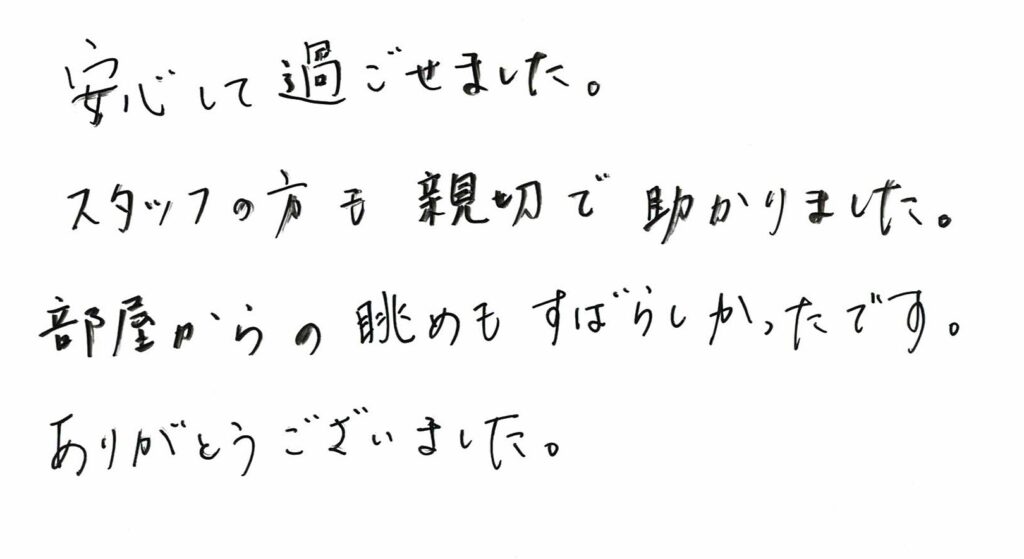 安心して過ごせました。
スタッフの方も親切で助かりました。
部屋からの眺めもすばらしかったです。
ありがとうございました。